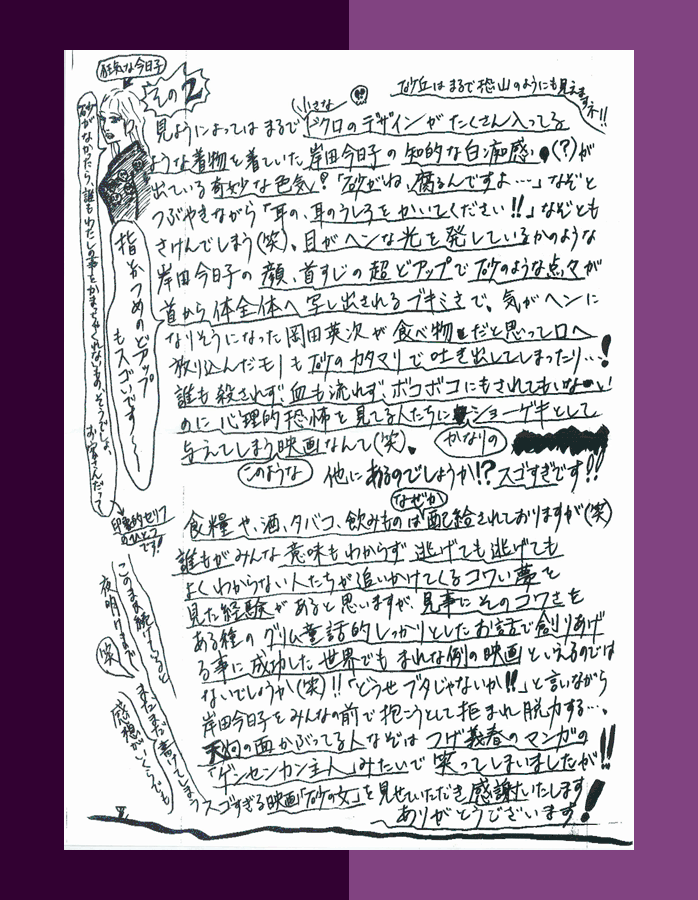 狂気な今日子
その2
砂丘はまるで恐山のようにも見えますネ!!
小さな
見ようによってはまるでドクロのデザインがたくさん入ってる
ような着物を着ていた岸田今日子の知的な白痴感(?)が
出ている奇妙な色気!「砂がね、腐るんですよ…」なぞと
つぶやきながら「耳の、耳のうしろをかいてください!!」なぞとも
さけんでしまう(笑)、目がヘンな光を発しているかのような
岸田今日子の顔、首すじの超どアップで砂のような点々が
首から体全体へ写し出されるブキミさで、気がヘンに
なりそうになった岡田英次が食べ物だと思って口へ
放り込んだモノも砂のカタマリで吐き出してしまったり…!
誰も殺されず、血も流れず、ボコボコにもされてもいない
のに心理的恐怖を見てる人たちにショーゲキとして
与えてしまう映画なんて(笑)、
かなりの
このような
他にあるのでしょうか!?スゴすぎです!!
砂がなかったら、誰もわたしの事などかまってやくれないもの、そうでしょ、お客さんだって
指かつめのどアップ
もスゴいです〜
印象的セリフ
のひとつ
です!
なぜか
食糧や、酒、タバコ、飲みものは配給されておりますが(笑)
誰もがみんな意味もわからず逃げても逃げても
よくわからない人たちが追いかけてくるコワい夢を
見た経験があると思いますが、見事にそのコワさを
ある種のグリム童話的しっかりとしたお話で創りあげ
る事に成功した世界でもまれな例の映画といえるのでは
ないでしょうか(笑)!!「どうせブタじゃないか!!」と言いながら
岸田今日子をみんなの前で抱こうとして拒まれ脱力する…、
天狗の面かぶってる人なぞはつげ義春のマンガの
「ゲンセンカン主人」みたいで笑ってしまいましたが!!
スゴすぎる映画「砂の女」を見せていただき感謝いたします
ありがとうございます!
このまま続けていると
夜明けまで
まだまだ書けてしまう
笑
感想がいくらでも